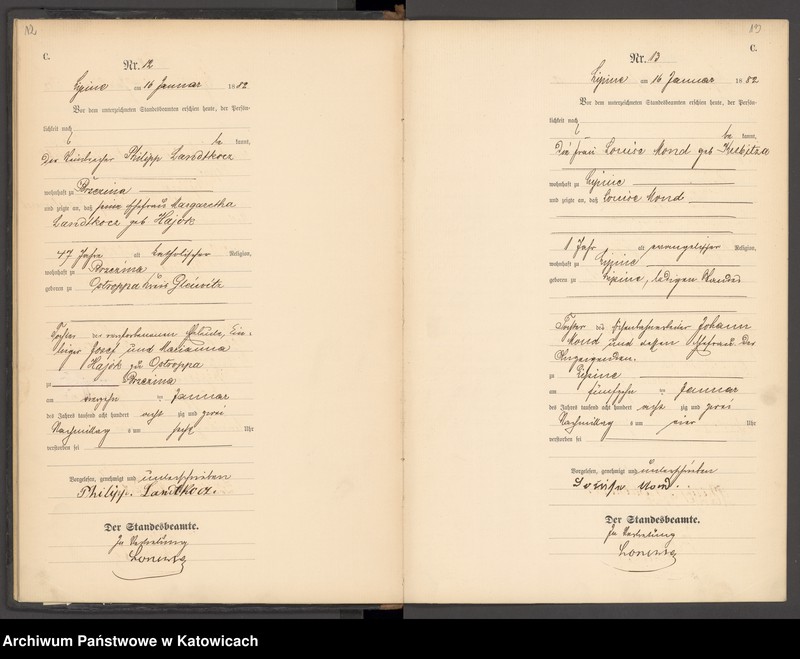 12
C.
Nr. 12
Lipine am 16 Januar 1882
Vor dem unterzeichneten Standesbeamten erschien heute, der Persön-
lichkeit nach
be kannt,
Der Philipp Landtkocz
wohnhaft zu Brzezina
und zeigte an, daß seine Ehefrau Margaretha
Landtkocz geb Hajok
47 Jahre alt katholischer Religion,
wohnhaft zu Brzezina
geboren zu Ostroppa Kreis Gleiwitz
Tochter der verstorbenen Eheleute, Ein-
lieger Josef und Marianna
Hajok zu Ostroppa
zu Brzezina
am vierzehn ten Januar
des Jahres tausend acht hundert acht zig und zwei
Nachmittag s um sechs Uhr
verstorben sei
Vorgelesen, genehmigt und unterschrieben
Philipp. Landtkocz.
Der Standesbeamte.
In Vertretung
13
C.
Nr. 13
Lipine am 16 Januar 1882
Vor dem unterzeichneten Standesbeamten erschien heute, der Persön-
lichkeit nach
be kannt,
Die Frau Louise Mond geb Kubitza
wohnhaft zu Lipine
und zeigte an, daß Louise Mond
1 Jahr alt evangelischer Religion,
wohnhaft zu Lipine
geboren zu Lipine, ledigen Standes
Tochter des Eisenbahnarbeiter Johann
Mond und dessen Ehefrau. Der
Anzeigenden.
zu Lipine
am fünfzehn ten Januar
des Jahres tausend acht hundert acht zig und zwei
Nachmittag s um vier Uhr
verstorben sei
Vorgelesen, genehmigt und unterschrieben
Louise Mond.
Der Standesbeamte.
In Vertretung
Archiwum Państwowe w Katowicach